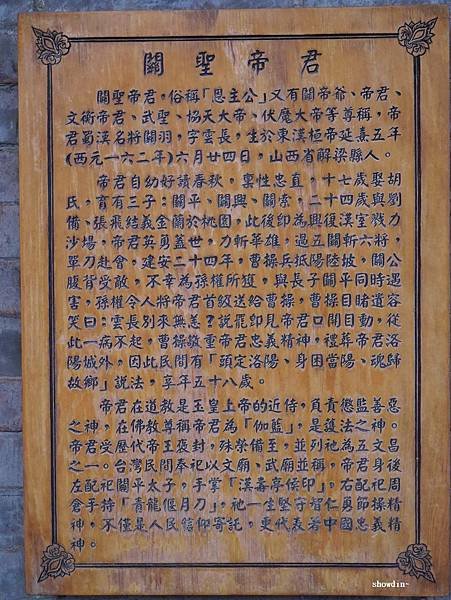 關聖帝君
關聖帝君，俗稱「恩主公」又有關帝爺、帝君、
文衡帝君、武聖、協天大帝、伏魔大帝等尊稱，帝
君蜀漢名將關羽，字雲長，生於東漢桓帝延熹五年
(西元一六二年)六月廿四日，山西省解梁縣人。
帝君自幼好讀春秋，稟性忠直，十七歲娶胡
氏，育有三子：關平、關興、關索，二十四歲與劉
備、張飛結義金蘭於桃園，此後即為興復漢室戮力
沙場，帝君英勇蓋世，刀斬華雄，過五關斬六將，
單刀赴會。建安二十四年，曹操兵抵陽陸坡，關公
腹背受敵，不幸為孫權所獲，與長子關平同時遇
害，孫權令人將帝君首級送給曹操，曹操目睹遺容
笑曰：雲長別來無恙？說罷即見帝君口開目動，從
此一病不起，曹操敬重帝君忠義精神，禮葬帝君洛
陽城外，因此民間有「頭定洛陽、身困當陽、魂歸
故鄉」說法，享年五十八歲。
帝君在道教是玉皇上帝的近侍，負責懲監善惡
之神，在佛教尊稱帝君為「伽藍」，是護法之神。
帝君受歷代帝王褒封，殊榮備至，並列祂為五文昌
之一。台灣民間奉祀以文廟、武廟並稱，帝君身後
左配祀關平太子，手掌「漢壽亭侯印」。右配祀周
倉手持「青龍偃月刀」，祂一生堅守智仁勇節操精
神，不僅是人民信仰寄託，更代表著中國忠義精
神。
showdin~